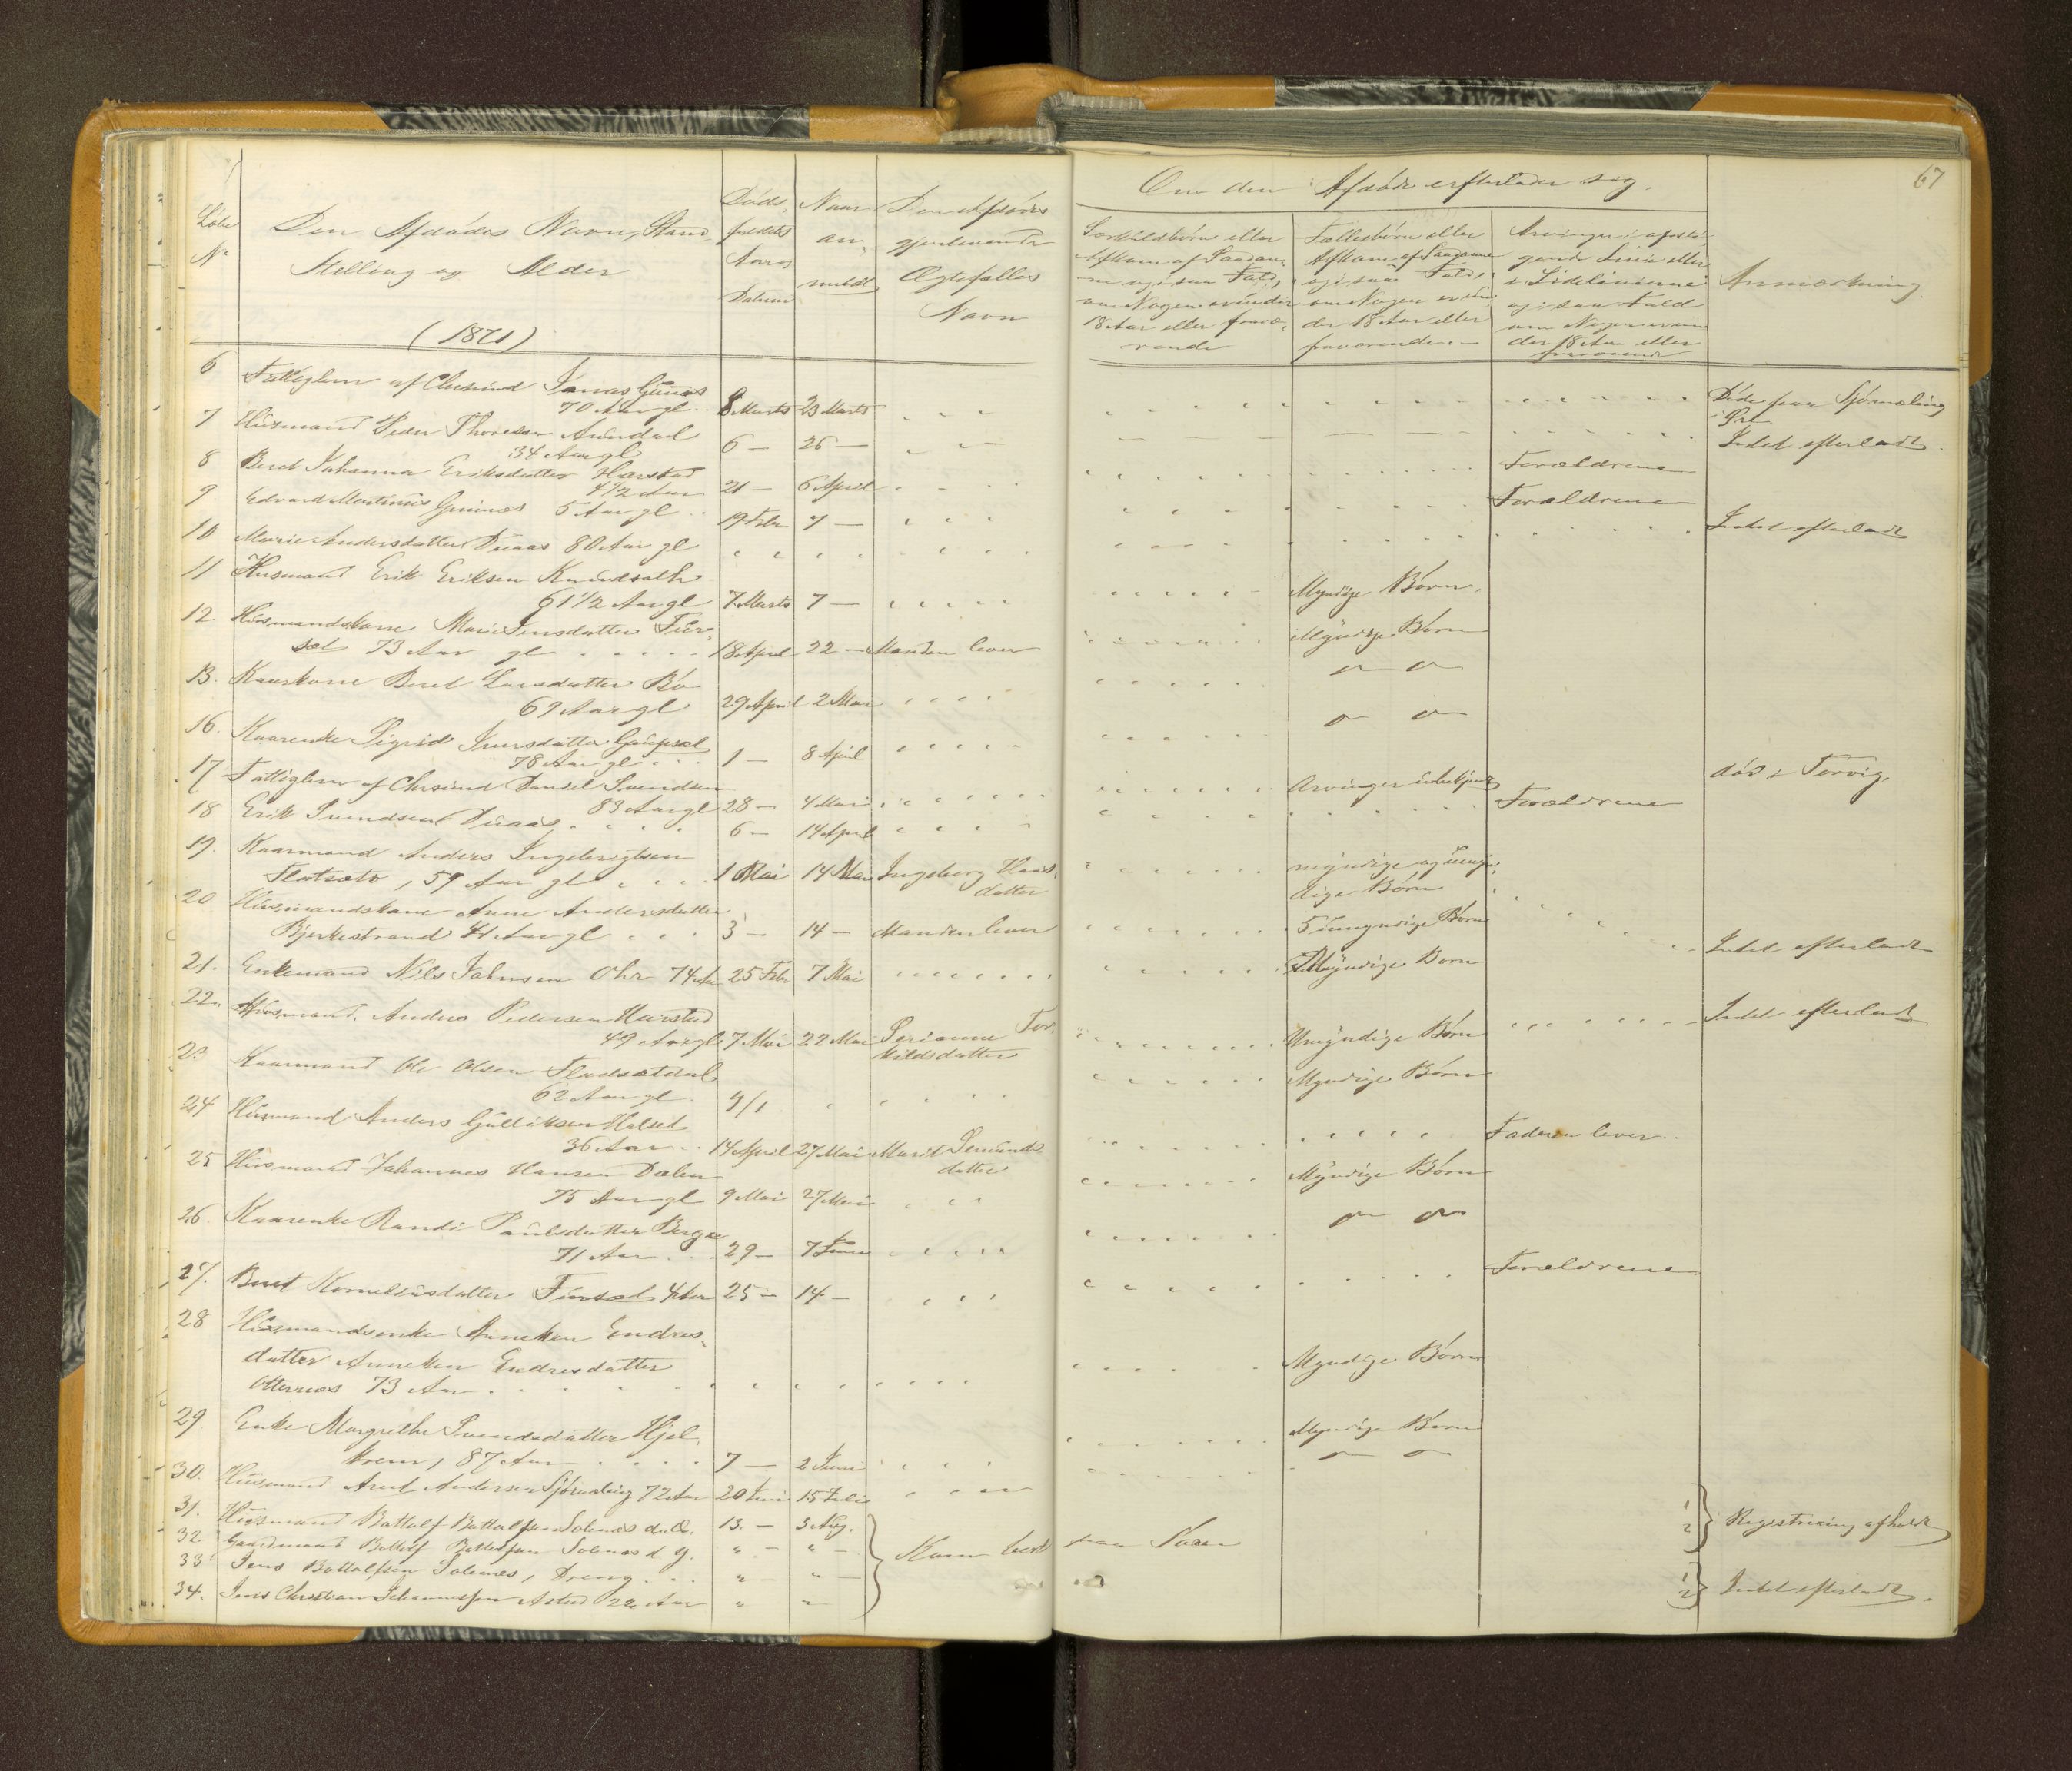 67
Løbe
No
Den Afdødes Navn, Stand,
Stilling og Alder
(1871)
Døds,
faldets
Aar og
Datum
Naar
an,
meldt
Den Afdødes
gjenlevende
Ægtefælles
Navn
Om den Afdøde efterlader sig.
Særkuldbørn eller
Afkom af Saadan,
ne og i saa Fald,
om Nogen er under
18 Aar eller fravæ,
rende
Fællesbørn eller
Afkom af Saadanne
og i saa Fald,
om Nogen er un
der 18 Aar eller
fraværende. -
Arvinger i opsti
gende Linie eller
i Sidelinierne
og i saa Fald
om Nogen er un
der 18 Aar eller
fraværende
Anmærkning
6 Fattiglem af Chrsund Jonas
70 Aar gl. 8 Marts 23 Marts Døde paa Sjømæling
7 Husmand Peder Thoresen Aundal
34 Aar gl 6 - 26 - Intet efterladt.
8 Beret Johanna Eriksdatter Harstad
4 1/2 Aar 21 - 6 April Forældrene
9 Edvard Martinus 5 Aar gl 19 Febr 7 - Forældrene
10 Marie Andersdatter Duaas 80 Aar gl Intet efterladt
11 Husmand Erik Eriksen Knudsæth
61 1/2 Aar gl 7 Marts 7 - Myndige Børn.
12 Husmandskone Marie Jensdatter Fur,
set 73 Aar gl 18 April 22 - Manden lever Myndige Børn
13. Kaarkone Beret Larsdatter Bø
69 Aar gl 29 April 2 Mai
16. Kaarenke Sigrid Iversdatter
78 Aar gl 1 - 8 April
17 Fattiglem af Chrsund Daniel Svendsen
83 Aar gl 28 - 4 Mai Arvinger ubekjendt død i Torvig.
18 Erik Svendsen Duaas 6 - 14 April Forældrene
19. Kaarmand Anders Ingebrigtsen
Flatsæto, 59 Aar gl 1 Mai 14 Mai Ingeborg Hans,
datter
myndige og umyn,
dige Børn
20 Husmandskone Anne Andersdatter
Bjerkestrand 41 Aar gl 3 - 14 - Manden lever 5 umyndige Børn
21. Enkemand Nils Johnsen Ohr 74 Aar 25 Febr 7 Mai Myndige Børn Intet efterladt
22. Husmand. Anders Pedersen Harstad
49 Aar gl 7 Mai 22 Mai Serianne Tor,
kildsdatter
Umyndige Børn Intet efterladt
23 Kaarmand Ole Olsen Fladsætdal
62 Aar gl 4/1 Myndige Børn
24 Husmand Anders Gulliksen Halset
36 Aar 14 April 27 Mai Marit Semunds
datter
Faderen lever
25 Husmand Johannes Hansen Dalen
75 Aar gl 9 Mai 27 Mai Myndige Børn
26. Kaarenke Randi Paulsdatter Berge
71 Aar 29 - 7 Juni
27. Beret Korneliusdatter Furset 4 Aar 25 - 14 - Forældrene
28 Husmandsenke Anneken Endres,
datter Anneken Endresdatter
Otternes 73 Aar Myndige Børn
29 Enke Margrethe Svendsdatter Hjel,
krem, 87 Aar 7 - 2 Juni Myndige Børn
30. Husmand Arnt Andersen Sjømæling 72 Aar 20 Juni 15 Juli
31. Husmand Bottolf Bottolfsen Solenæs d. Æ. 13. - 3 Aug.
32. Gaardmand Bottolf Bottolfsen Solenæs d. y. " - " -
33 Jens Bottolfsen Solenæs, Dreng " - " -
34. Jens Christian Johannesen 22 Aar " "
Kom bort paa Søen
1
2 } Registrering afholdt
1
2 } Intet efterladt.